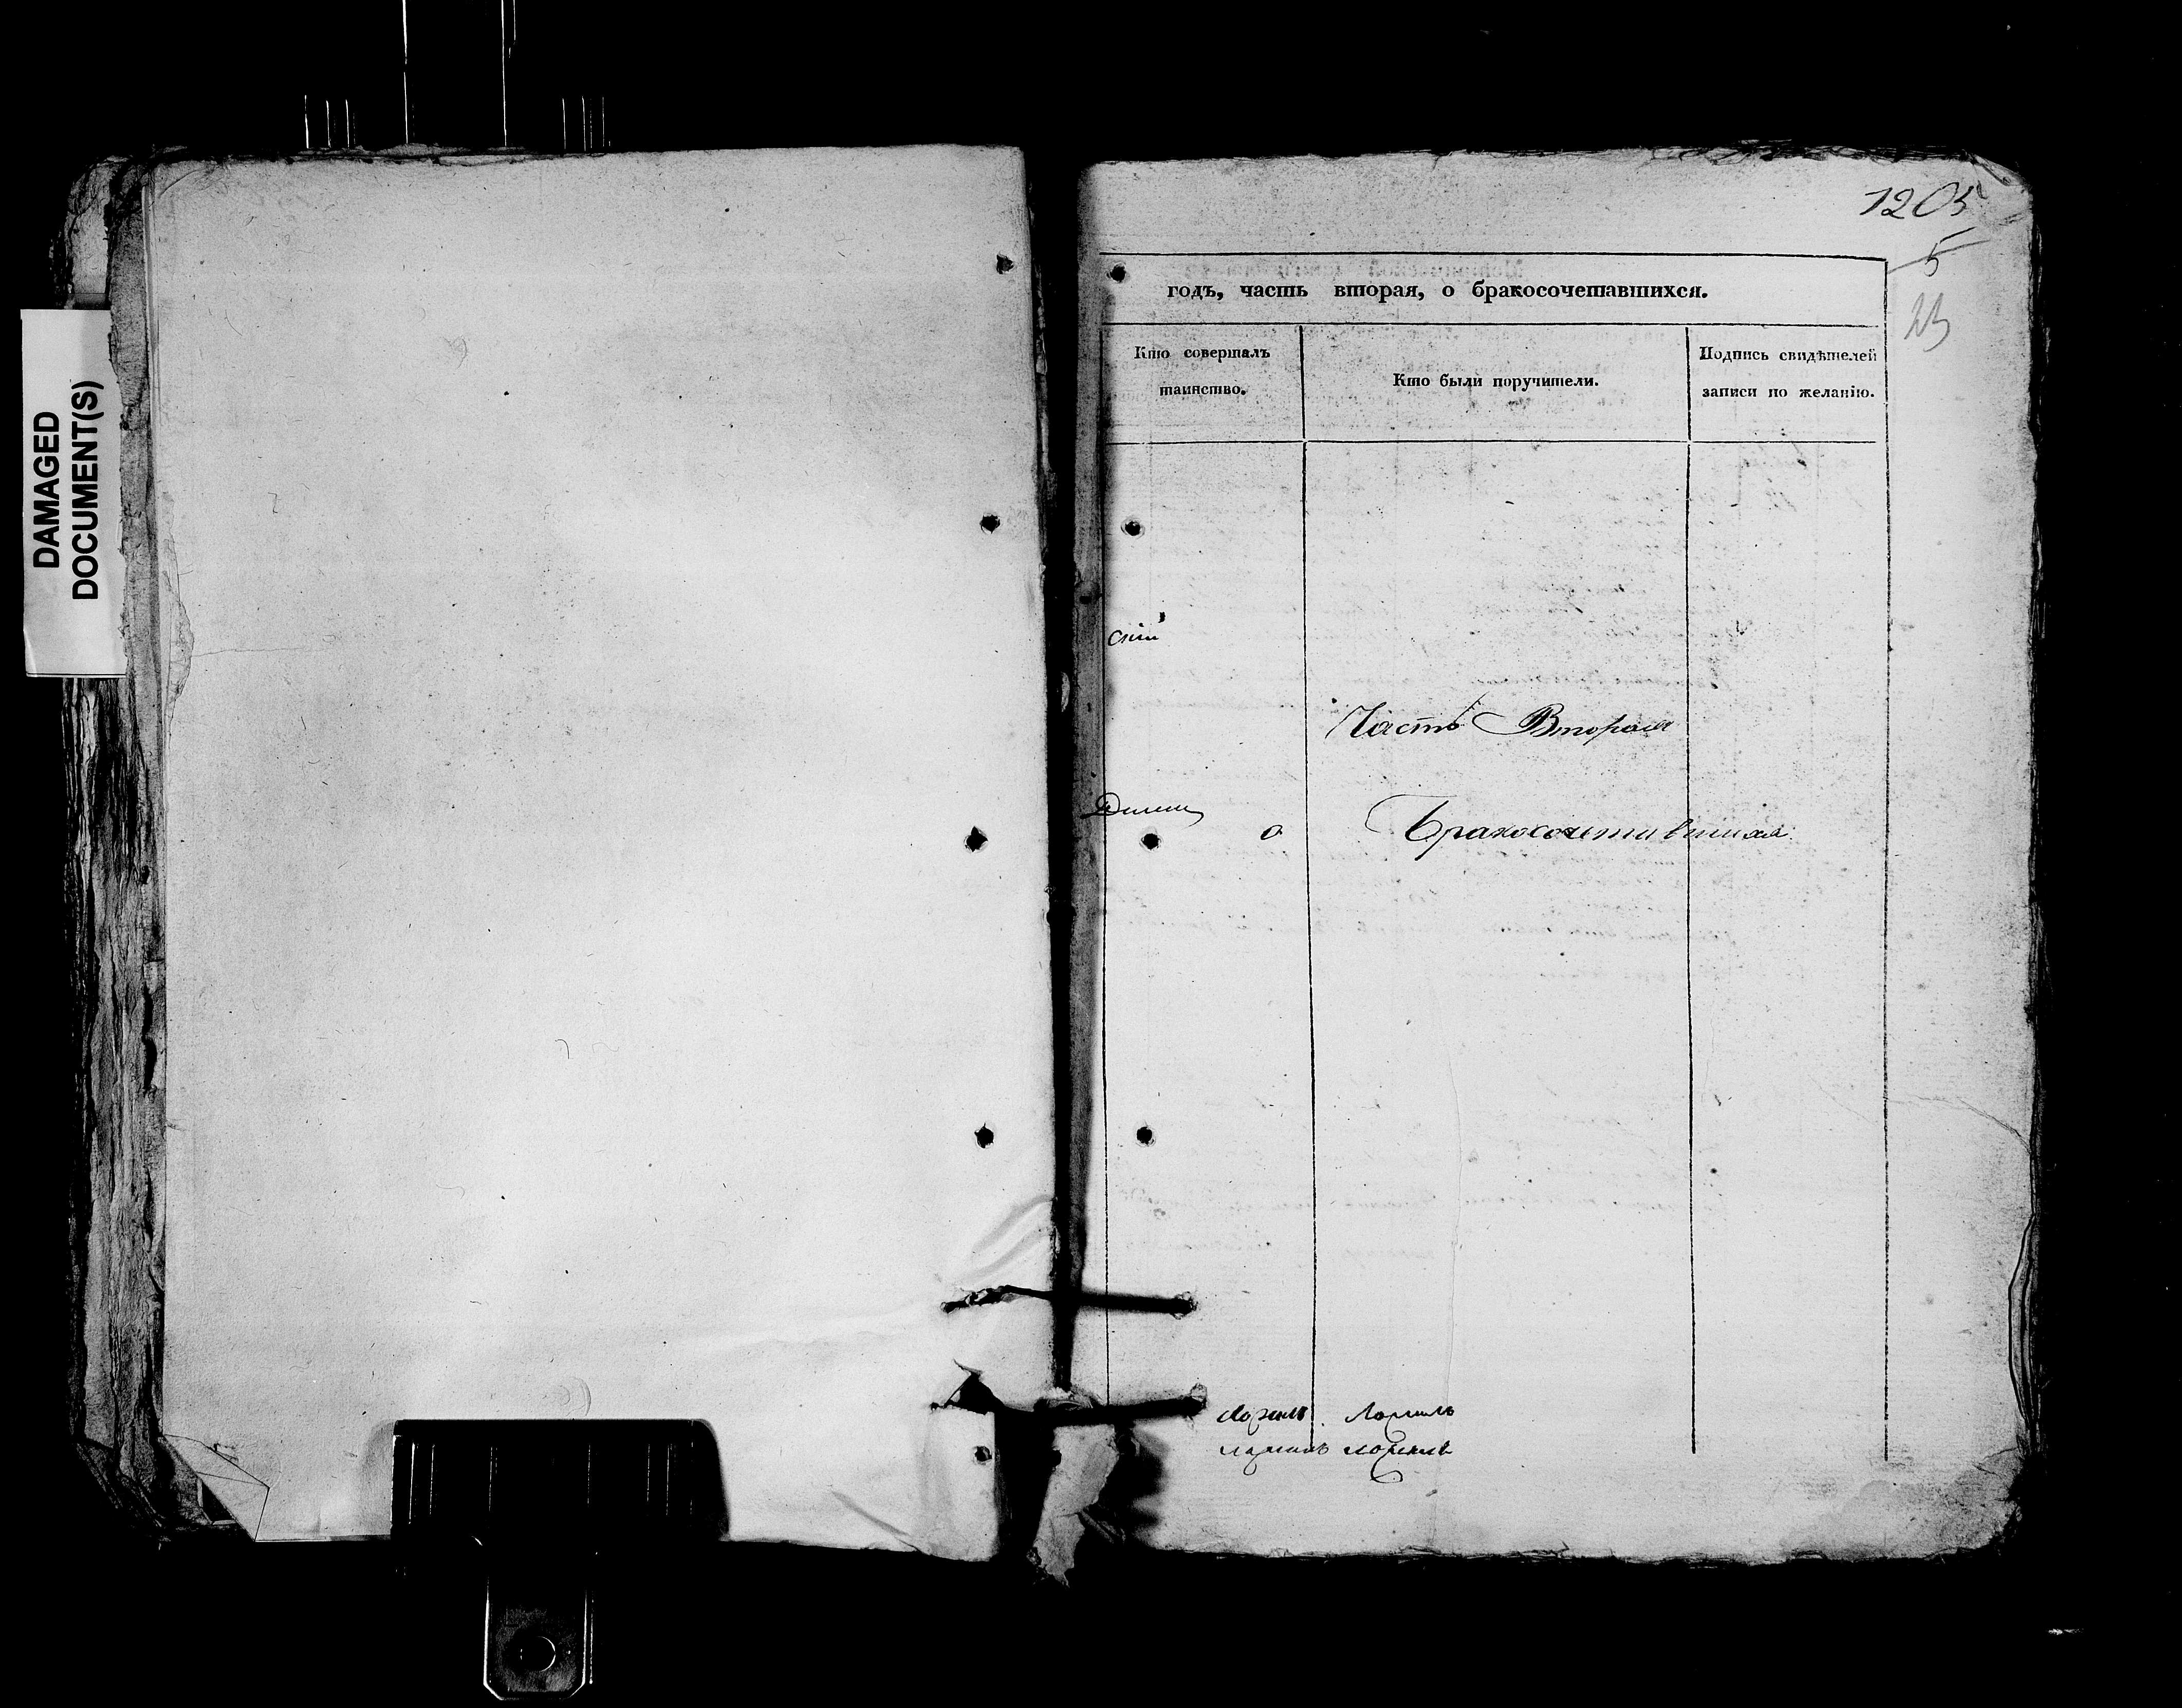 DAMAGED
DOCUMENT(S)
1205
5
23
годъ, часть вторая, о бракосочетавшихся.
Кто совершалъ
таинство.
Кто были поручители.
Подпись свидѣтелей
записи по желанію.
Часть Вторая
о Бракосочетавшихся